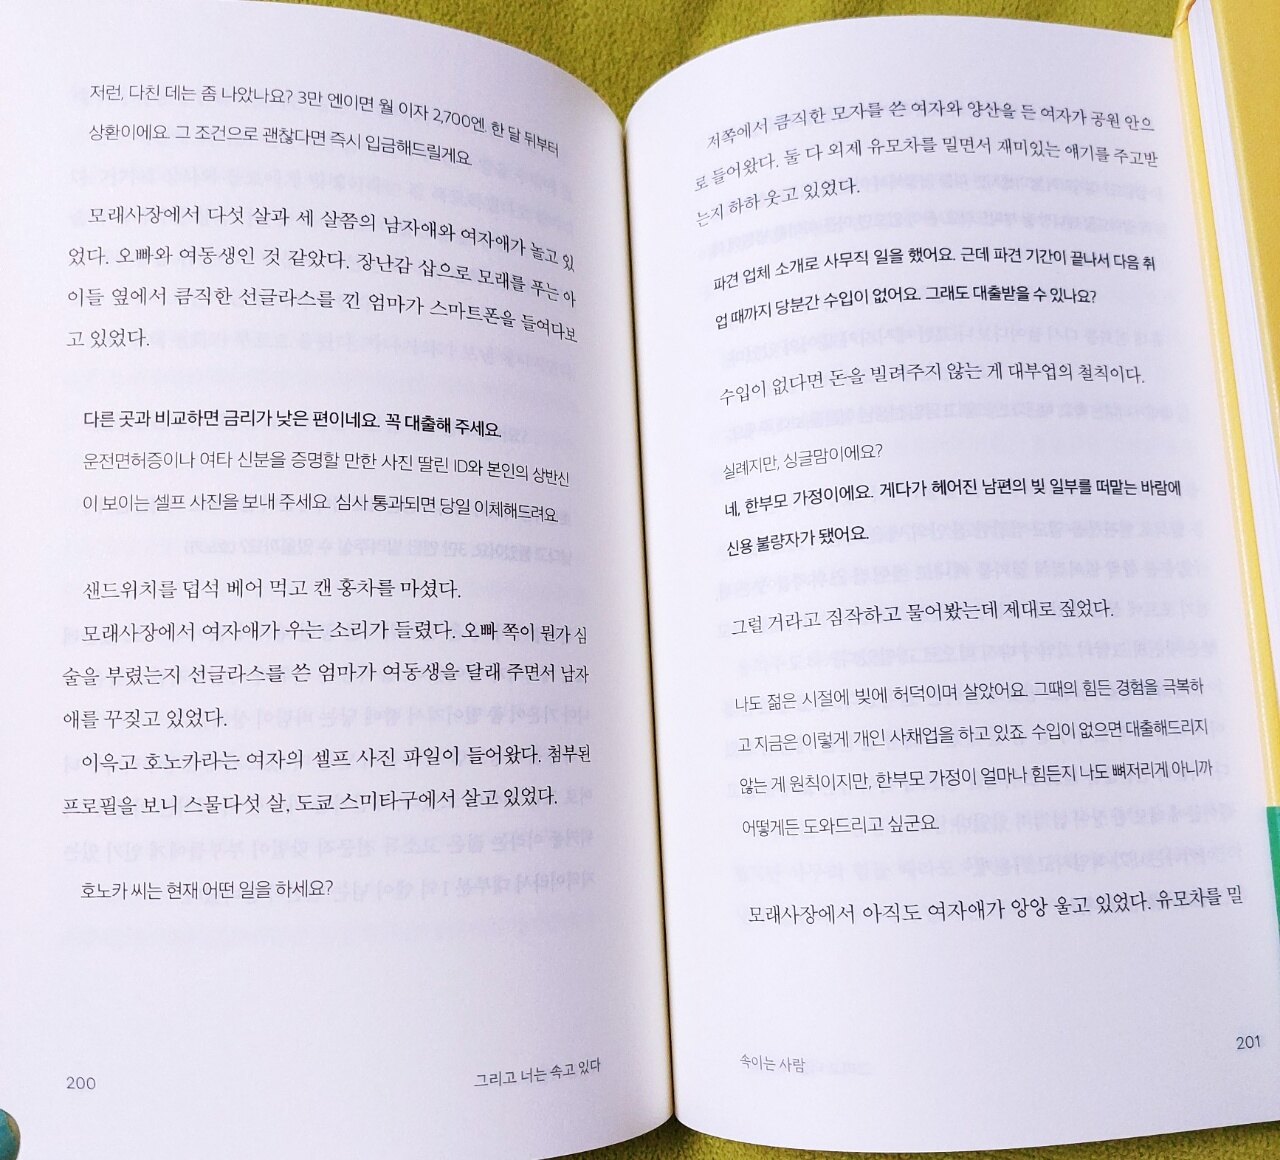 저런, 다친 데는 좀 나았나요? 3만 엔이면 월 이자 2,700엔. 한 달 뒤부터
상환이에요. 그 조건으로 괜찮다면 즉시 입금해드릴게요.
모래사장에서 다섯 살과 세 살쯤의 남자애와 여자애가 놀고 있
었다. 오빠와 여동생인 것 같았다. 장난감 삽으로 모래를 푸는 아
이들 옆에서 큼직한 선글라스를 낀 엄마가 스마트폰을 들여다보
고 있었다.
다른 곳과 비교하면 금리가 낮은 편이네요. 꼭 대출해 주세요.
운전면허증이나 여타 신분을 증명할 만한 사진 딸린 ID와 본인의 상반신
이 보이는 셀프 사진을 보내 주세요. 심사 통과되면 당일 이체해드려요.
샌드위치를 덥석 베어 먹고 캔 홍차를 마셨다.
모래사장에서 여자애가 우는 소리가 들렸다. 오빠 쪽이 뭔가 심
술을 부렸는지 선글라스를 쓴 엄마가 여동생을 달래 주면서 남자
애를 꾸짖고 있었다.
이윽고 호노카라는 여자의 셀프 사진 파일이 들어왔다. 첨부된
프로필을 보니 스물다섯 살, 도쿄 스미타구에서 살고 있었다.
호노카 씨는 현재 어떤 일을 하세요?
200
그리고 너는 속고 있다
저쪽에서 큼직한 모자를 쓴 여자와 양산을 든 여자가 공원 안으
로 들어왔다. 둘 다 외제 유모차를 밀면서 재미있는 얘기를 주고받
는지 하하 웃고 있었다.
파견 업체 소개로 사무직 일을 했어요. 근데 파견 기간이 끝나서 다음 취
업 때까지 당분간 수입이 없어요. 그래도 대출받을 수 있나요?
수입이 없다면 돈을 빌려주지 않는 게 대부업의 철칙이다.
실례지만, 싱글맘이에요?
네, 한부모 가정이에요. 게다가 헤어진 남편의 빚 일부를 떠맡는 바람에
신용 불량자가 됐어요.
그럴 거라고 짐작하고 물어봤는데 제대로 짚었다.
나도 젊은 시절에 빚에 허덕이며 살았어요. 그때의 힘든 경험을 극복하
고 지금은 이렇게 개인 사채업을 하고 있죠. 수입이 없으면 대출해드리지
않는 게 원칙이지만, 한부모 가정이 얼마나 힘든지 나도 뼈저리게 아니까
어떻게든 도와드리고 싶군요.
모래사장에서 아직도 여자애가 앙앙 울고 있었다. 유모차를 밀
속이는 사람
201